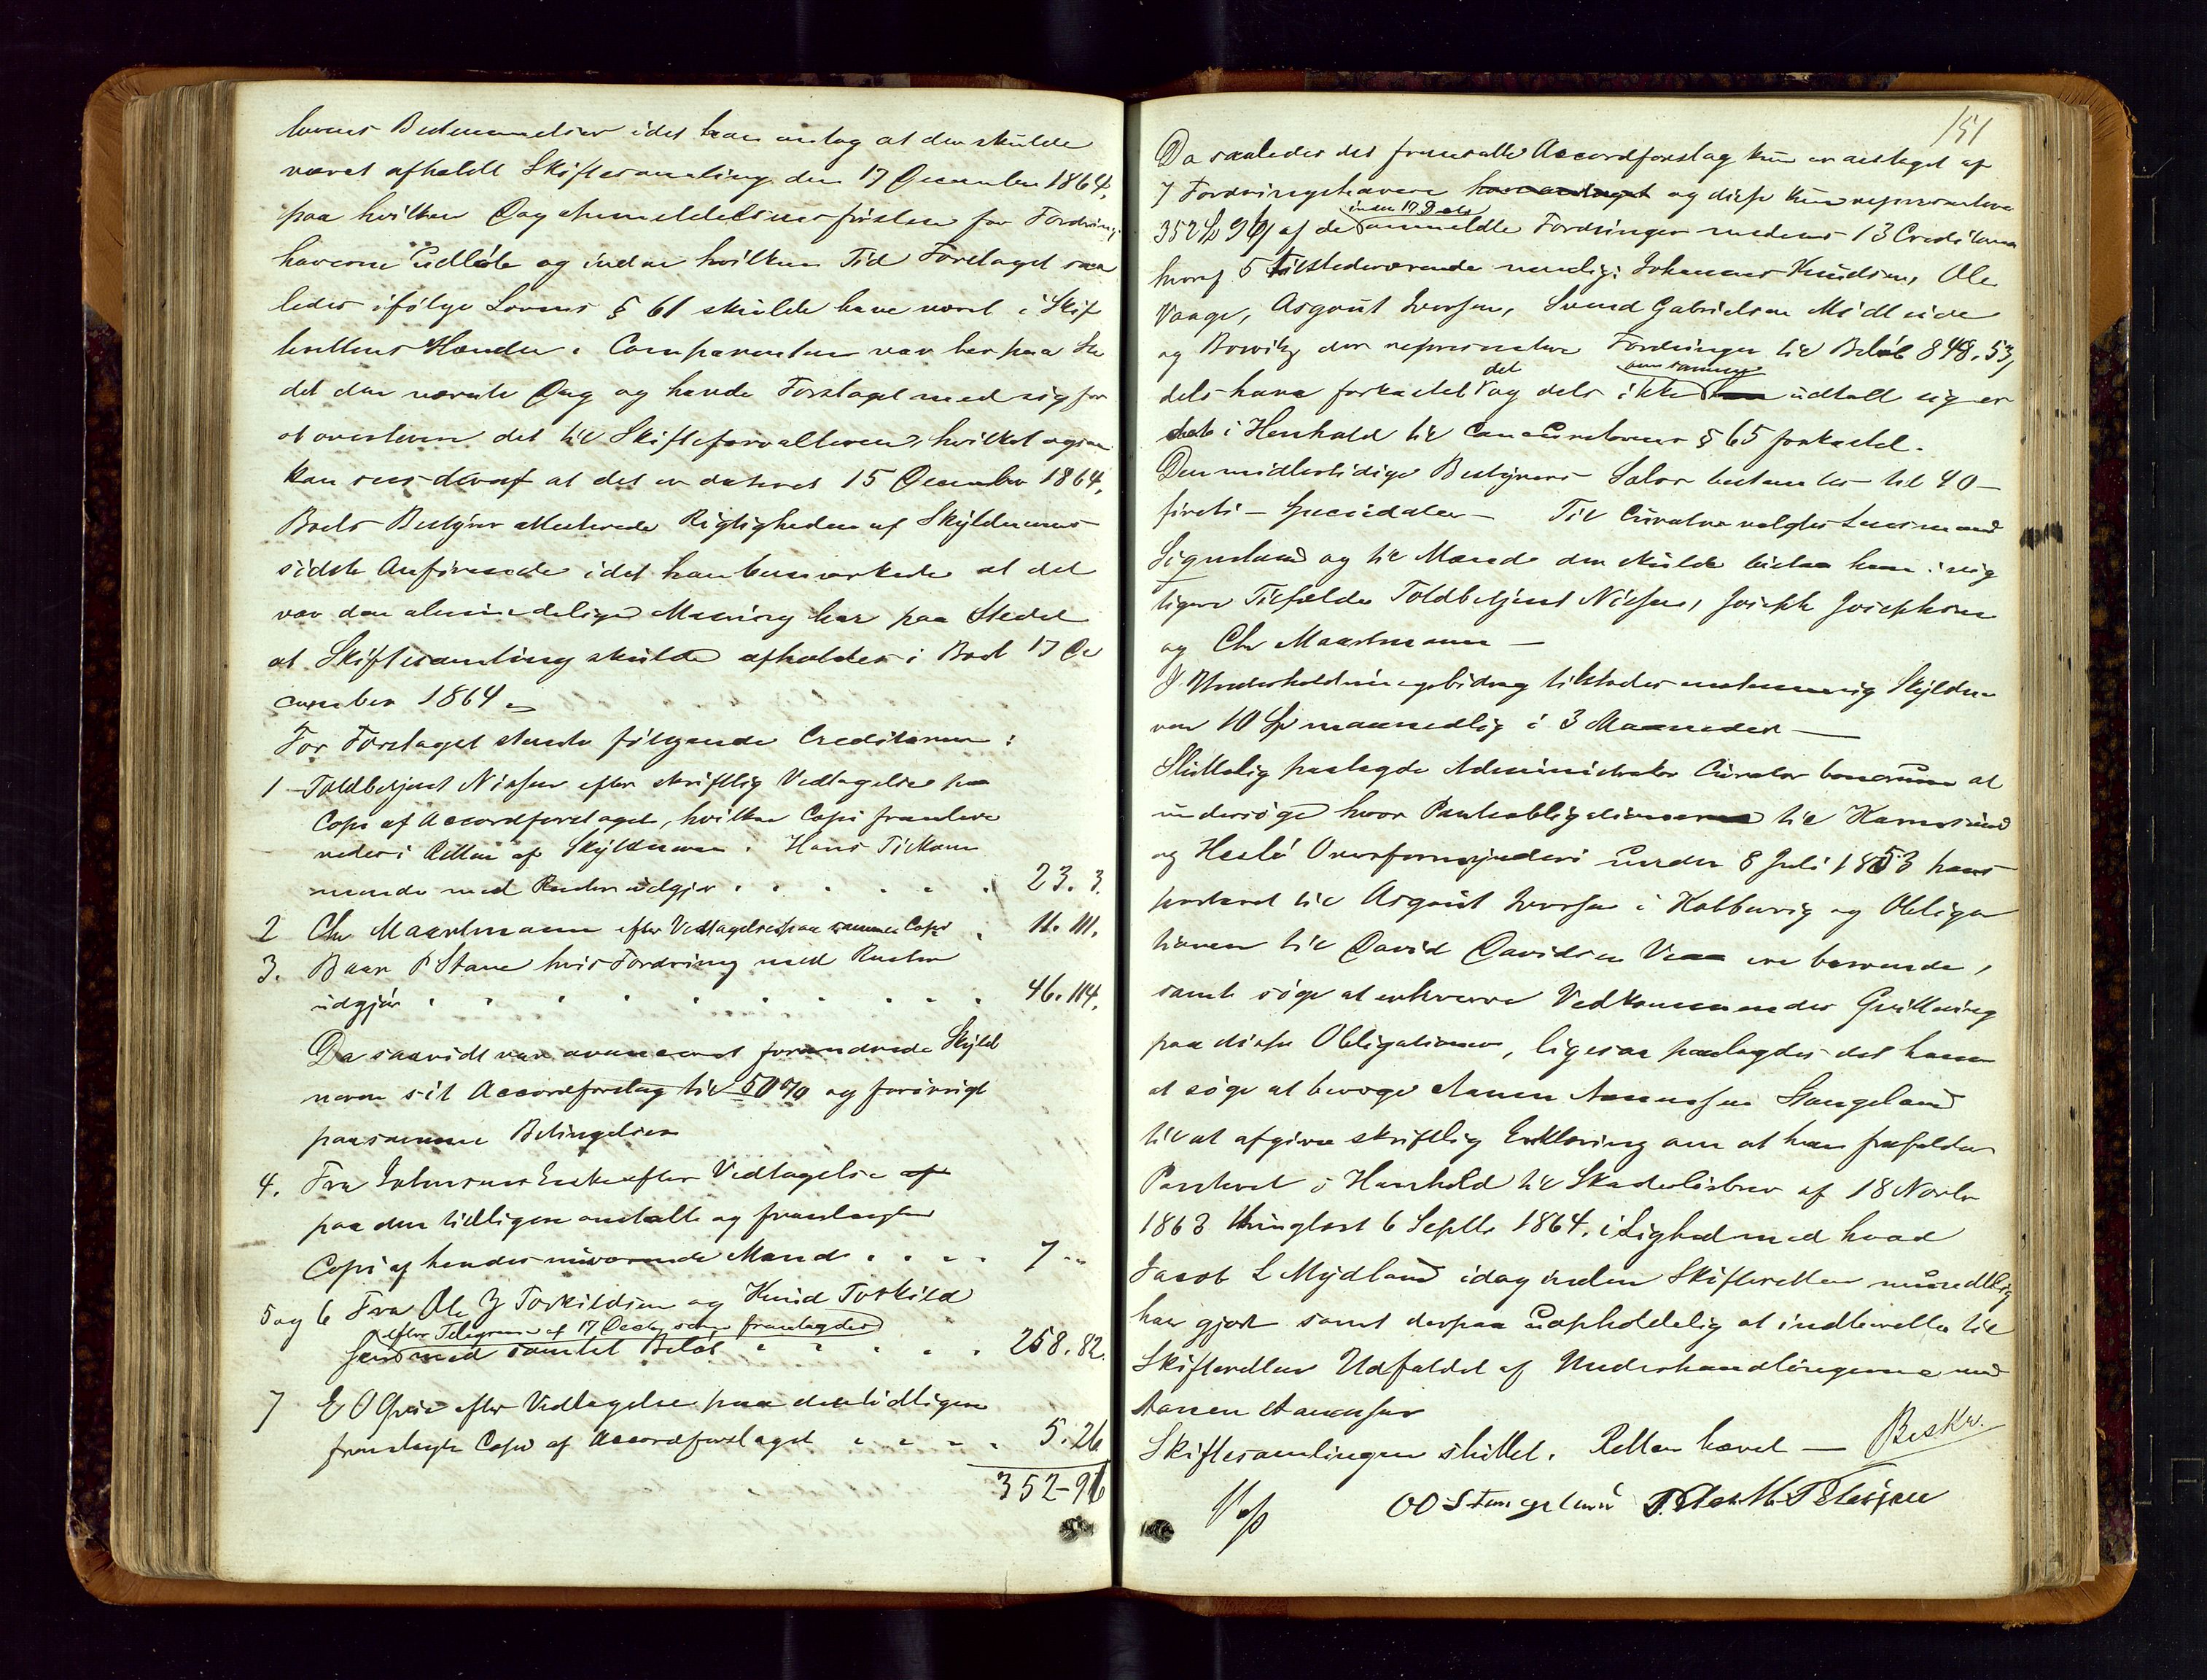 lovens Bestemmelser idet han antog at der skulde
været afholdt Skiftesamling den 17 December 1864,
paa hvilken Dag Anmeldelsesfristen for Fordrings
haverne Udløb og inden hvilken Tid Forslaget saa
ledes ifølge Lovens § 61 skulde have været i Skif
terettens Hænder. Comparenten var her paa Ste
det den nævnte Dag og havde Forslaget med sig for
at overlevere det til Skifteforvalteren, hvilket ogsaa
kan sees deraf at det er dateret 15 December 1864,
Boets Bestyrer attesterede Rigtigheden af Skyldnerens
sidste Anførende idet han bemærkede at det
var den almindelige Mening her paa Stedet
at Skiftesamling skulde afholdes i Boet 17 De
cember 1864 –
For Forslaget stemte følgende Creditorer:
1 Toldbetjent Nielsen efter skriftlig Vedtagelse paa
Copi af Accordforslaget, hvilken Copi fremleve
redes i Retten af Skyldneren. Hans Tilkom
mende med Renter udgjør . . . . . 23. 3.
2 Chr Maartmann efter Vedtagelse paa samme Copi . 11. 111.
3. Baar P Stane hvis Fordring med Renter
udgjør . . . . . . . . . 46. 114.
Da saavidt var avanceret forandrede Skyld
neren sit Accordforslag til 50 % og forøvrigt
paa samme Betingelser
4. Fra Enke efter Vedtagelse af
paa den tidligere omtalte og fremlagte
Copi af hendes nuværende Mand . . . . 7 --
5 og 6 Fra Ole J Torkildsen og Knud Torkild
efter Telegram af 17 Decbr som fremlagdes
sen med samlet Beløb . . . . . 258. 82.
7 E O efter Vedtagelse paa den tidligere
fremlagte Copi af Accordforslaget . . . . 5. 26
352-96
151
Da saaledes det fremsatte Accordforslag kun er antaget af
7 Fordringshavere har antaget og disse kun repræsentere
inden 17 Decb
352 Sp 96 s af de anmeldte Fordringer medens 13 Creditorer
hvoraf 5 tilstedeværende nemlig: Johannes Knudsen, Ole
Vaage, Asgaut Iversen, Svend Gabrielsen Midteide
og Bowitz der repræsentere Fordringer til Beløb 848. 53,
det om samme
dels have forkastet og dels ikke har udtalt sig er
dette i Henhold til Concurslovens § 65 forkastet.
Den midlertidige Bestyrers Salær bestemtes til 40 –
firti – Speciedaler – Til Curator valgtes Lensmand
Sigveland og til Mænd der skulde bistaa ham i vig
tigere Tilfælde Toldbetjent Nielsen, Joseph Josephsen
og Chr Maartmann –
I Underholdningsbidrag tilstodes enstemmig Skyldne
ren 10 Sp maanedlig i 3 Maaneder –
Sluttelig paalagde Administrator Curator bonorum at
undersøge hvor Panteobligationerne til Karmsund
og Hesbø Overformynderi under 8 Juli 1853 trans
porteret til Asgaut Iversen i Kolbeinvig og Obliga
tionen til David Davidsen Veaa ere beroende,
samt søge at erhverve Vedkommendes Qvittering
paa disse Obligationer, ligesaa paalagdes det ham
at søge at bevæge Aanen Aanensen Stangeland
til at afgive skriftlig Erklæring om at han frafalder
Panteret i Henhold til Skadesløsbrev af 18 Novbr
1863 thinglæst 6 Septbr 1864. i Lighed med hvad
Jacob L Mydland idag inden Skifteretten mundtlig
har gjort samt derpaa uopholdelig at indberette til
Skifteretten Udfaldet af Underhandlingerne med
Aanen Aanensen
Skiftesamlingen sluttet. Retten hævet – Beskr.
OO Stangeland Peter M. Petersen